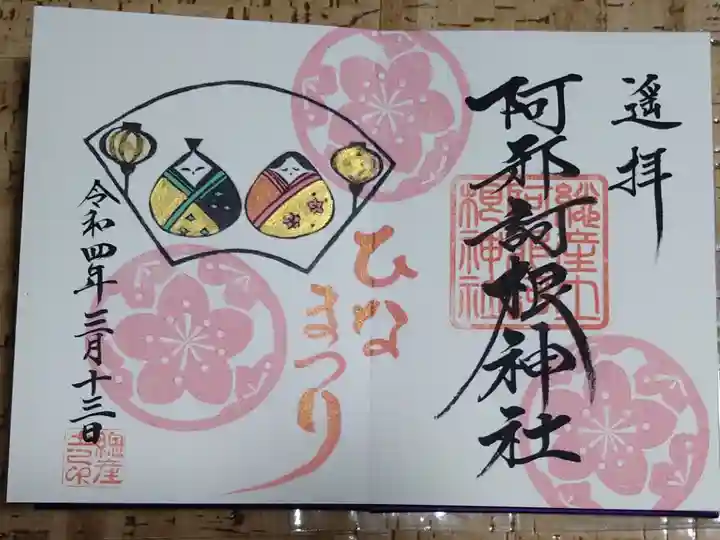 遥拝
阿邪訶根神社
ひな
まつり
令和四年三月十三日